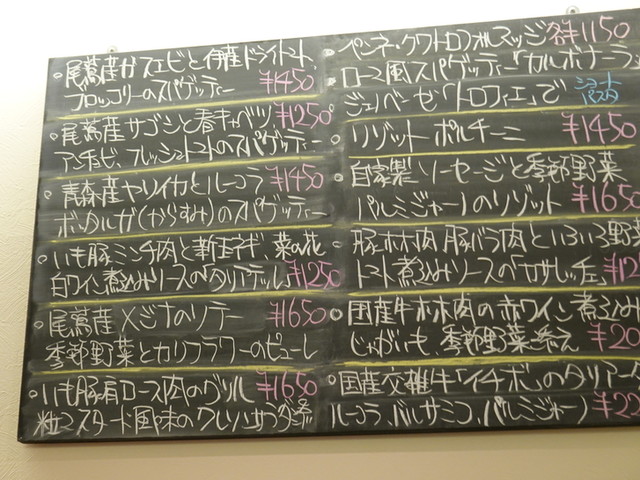 尾鷲産ガスエビと伊産ドライトマト、
ブロッコリーのスパゲッティー ¥1450
尾鷲産サゴシと春キャベツ ¥1250
アンチョビ、フレッシュトマトのスパゲッティー
青森産ヤリイカとルーコラ ¥1450
ボッタルガ(からすみ)のスパゲッティー
いも豚ミンチ肉と新玉ネギ、菜の花
白ワイン煮込みソースのタリアテッレ ¥1250
尾鷲産メジナのソテー ¥1650
季節野菜とカリフラワーのピューレ
いも豚肩ロース肉のグリル ¥1650
粒マスタード風味のクレソンサラダ添
ペンネ・クワトロフォルマッジ 各¥1150
ローマ風スパゲッティー「カルボナーラ」
ジェノベーゼ「トロフィエ」で ショートパスタ
リゾット ポルチーニ ¥1450
自家製ソーセージと季節野菜
パルミジャーノのリゾット ¥1650
豚ホホ肉、豚バラ肉といろいろ野菜
トマト煮込みソースの「カサレッチェ」 ¥12
国産牛ホホ肉の赤ワイン煮込み
じゃがいも、季節野菜添え ¥20
国産交雑牛「イチボ」のタリアータ
ルーコラ、バルサミコ、パルミジャーノ ¥22